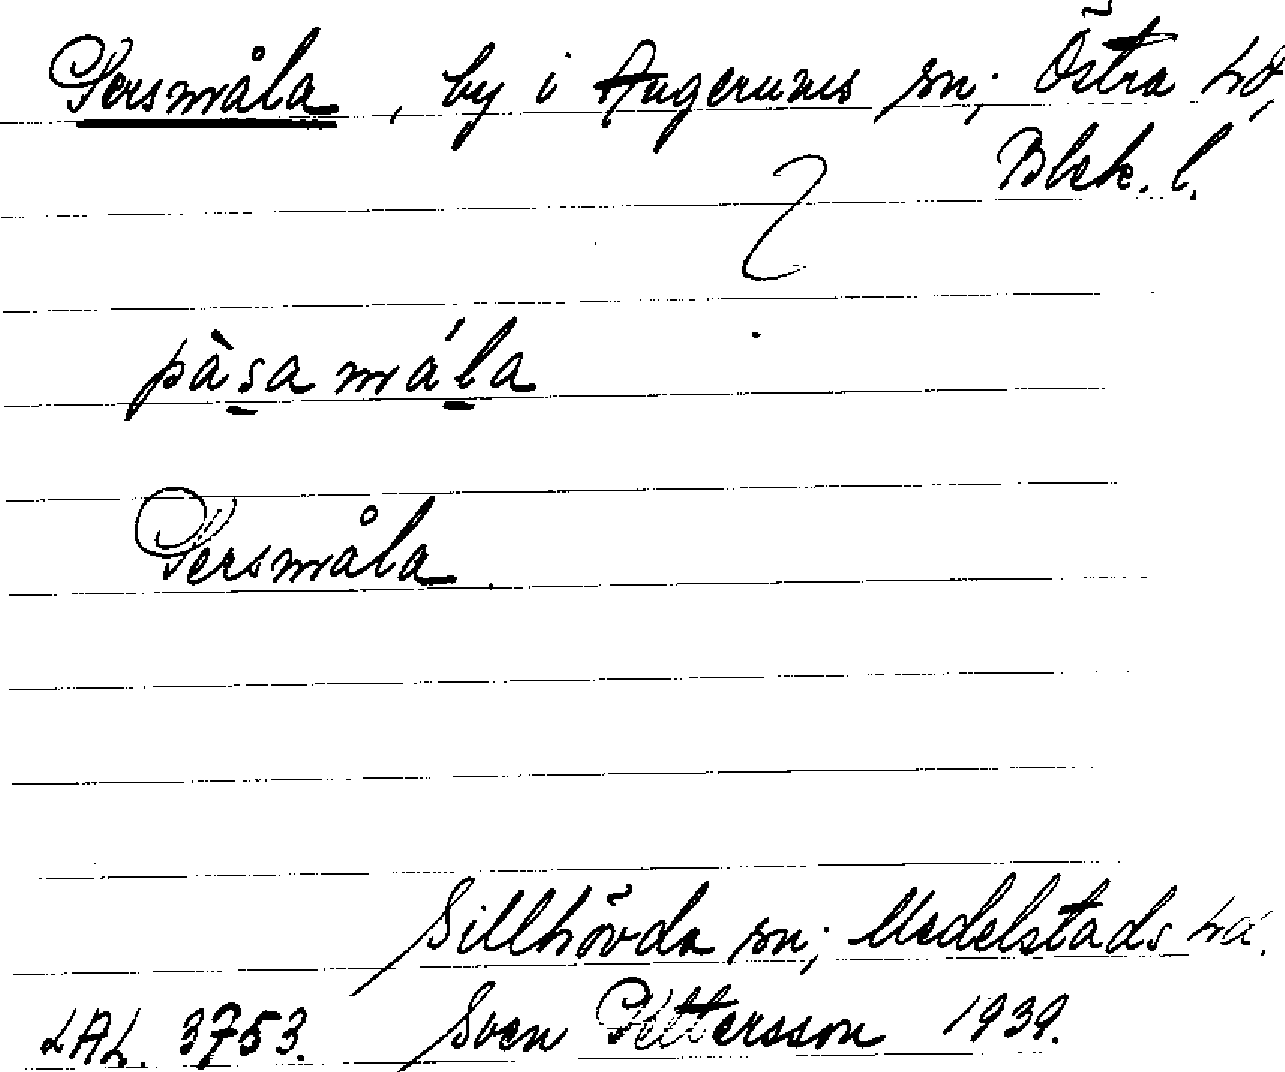 Persmåla, by i Augerums sn; Östra hd,
Blek. l.
pàsa mála
Persmåla.
Sillhövda sn; Medelstads hd.
LAL. 3753. Sven Pettersson 1939.